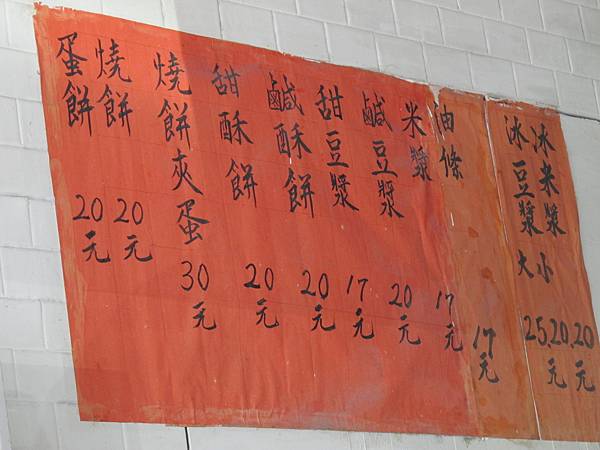 冰米漿 20元
冰豆漿 大小 25.20元
油條 17元
米漿 17元
鹹豆漿 20元
甜豆漿 17元
鹹酥餅 20元
甜酥餅 20元
燒餅夾蛋 30元
燒餅 20元
蛋餅 20元